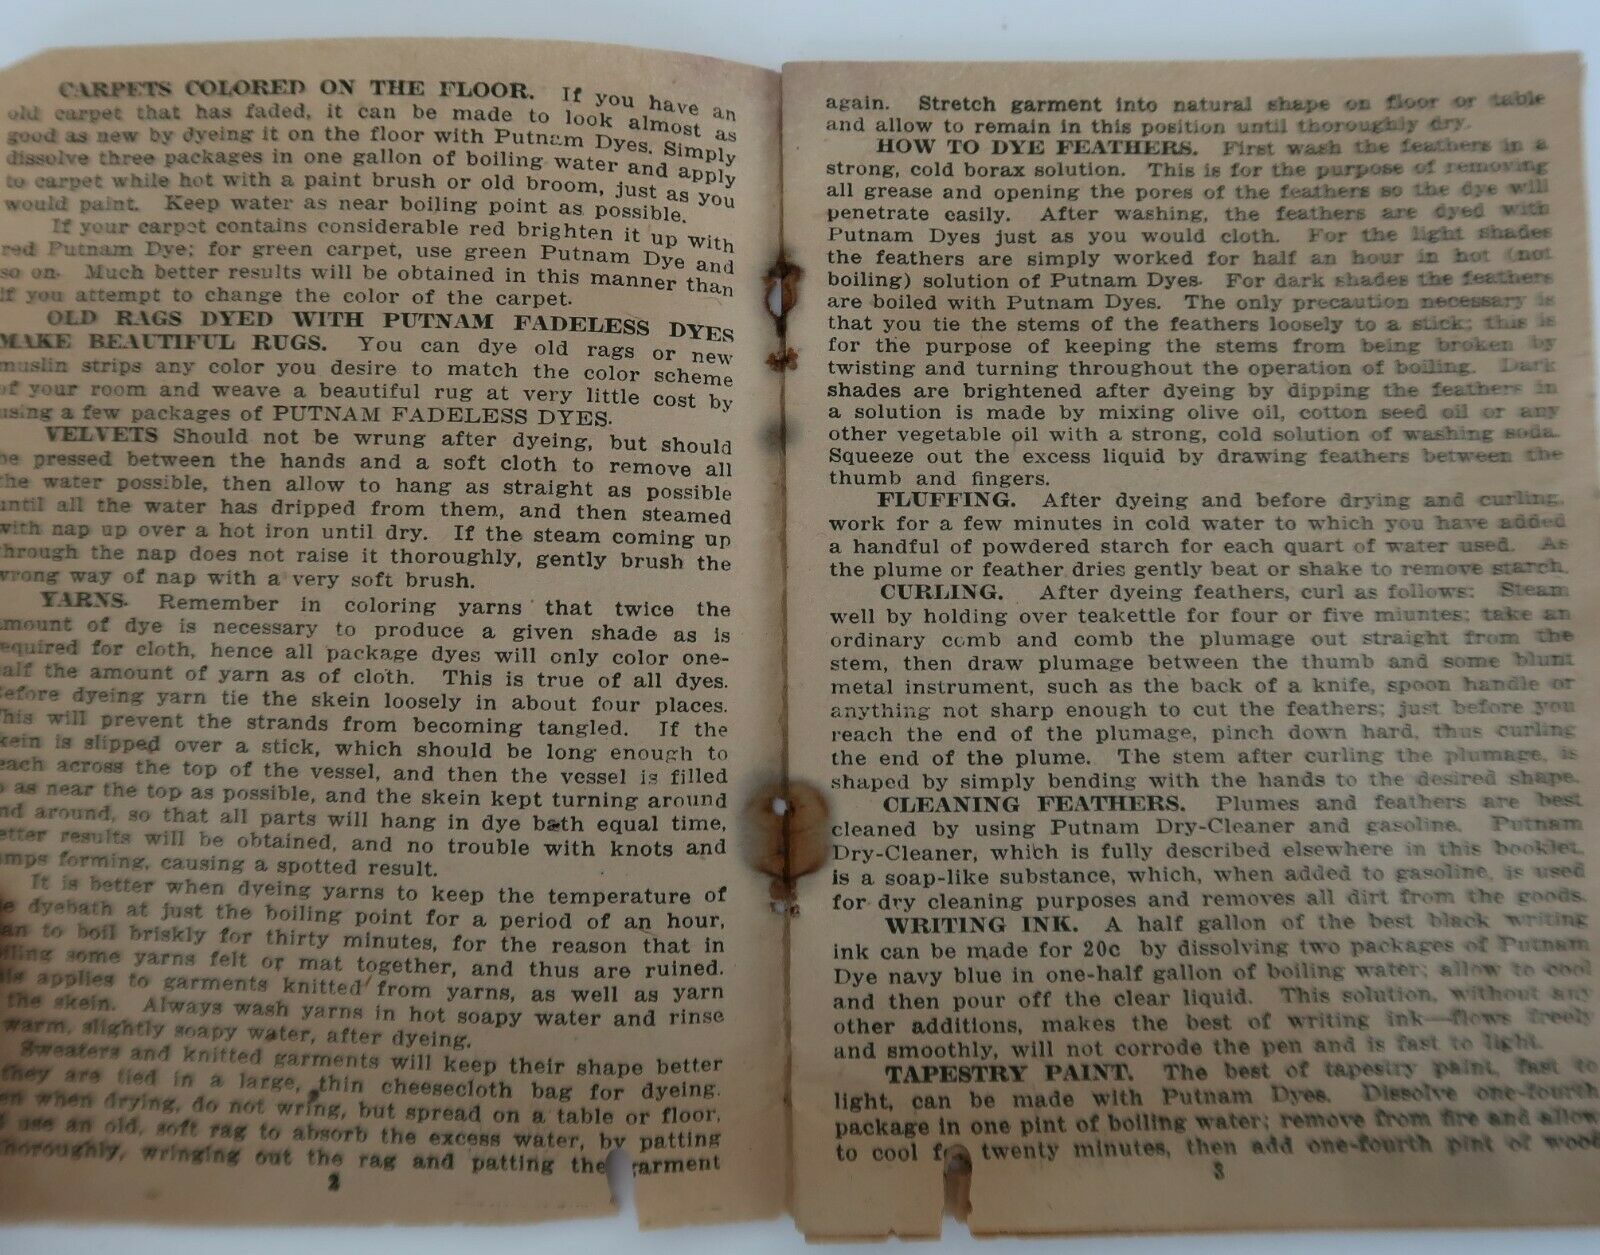 CARPETS COLORED ON THE FLOOR. If you have an
old carpet that has faded, it can be made to look almost as
good as new by dyeing it on the floor with Putnam Dyes. Simply
dissolve three packages in one gallon of boiling water and apply
to carpet while hot with a paint brush or old broom, just as you
would paint. Keep water as near boiling point as possible.
If your carpet contains considerable red brighten it up with
red Putnam Dye; for green carpet, use green Putnam Dye and
so on. Much better results will be obtained in this manner than
if you attempt to change the color of the carpet.
OLD RAGS DYED WITH PUTNAM FADELESS DYES
MAKE BEAUTIFUL RUGS. You can dye old rags or new
muslin strips any color you desire to match the color scheme
of your room and weave a beautiful rug at very little cost by
using a few packages of PUTNAM FADELESS DYES.
VELVETS Should not be wrung after dyeing, but should
be pressed between the hands and a soft cloth to remove all
the water possible, then allow to hang as straight as possible
until all the water has dripped from them, and then steamed
with nap up over a hot iron until dry. If the steam coming up
through the nap does not raise it thoroughly, gently brush the
wrong way of nap with a very soft brush.
YARNS. Remember in coloring yarns that twice the
amount of dye is necessary to produce a given shade as is
required for cloth, hence all package dyes will only color one-
half the amount of yarn as of cloth. This is true of all dyes.
Before dyeing yarn tie the skein loosely in about four places.
This will prevent the strands from becoming tangled. If the
skein is slipped over a stick, which should be long enough to
reach across the top of the vessel, and then the vessel is filled
as near the top as possible, and the skein kept turning around
and around, so that all parts will hang in dye bath equal time,
better results will be obtained, and no trouble with knots and
forming, causing a spotted result.
It is better when dyeing yarns to keep the temperature of
dyebath at just the boiling point for a period of an hour,
to boil briskly for thirty minutes, for the reason that in
boiling some yarns felt or mat together, and thus are ruined.
applies to garments knitted from yarns, as well as yarn
the skein. Always wash yarns in hot soapy water and rinse
warm, slightly soapy water, after dyeing.
Sweaters and knitted garments will keep their shape better
they are tied in a large, thin cheesecloth bag for dyeing.
when drying, do not wring, but spread on a table or floor,
use an old, soft rag to absorb the excess water, by patting
thoroughly, wringing out the rag and patting the garment
2
again. Stretch garment into natural shape on floor or table
and allow to remain in this position until thoroughly dry.
HOW TO DYE FEATHERS. First wash the feathers in a
strong, cold borax solution. This is for the purpose of removing
all grease and opening the pores of the feathers so the dye will
penetrate easily. After washing, the feathers are dyed with
Putnam Dyes just as you would cloth. For the light shades
the feathers are simply worked for half an hour in hot (not
boiling) solution of Putnam Dyes. For dark shades the feathers
are boiled with Putnam Dyes. The only precaution necessary is
that you tie the stems of the feathers loosely to a stick; this is
for the purpose of keeping the stems from being broken by
twisting and turning throughout the operation of boiling. Dark
shades are brightened after dyeing by dipping the feathers in
a solution is made by mixing olive oil, cotton seed oil or any
other vegetable oil with a strong, cold solution of washing soda.
Squeeze out the excess liquid by drawing feathers between the
thumb and fingers.
FLUFFING. After dyeing and before drying and curling,
work for a few minutes in cold water to which you have added
a handful of powdered starch for each quart of water used. As
the plume or feather dries gently beat or shake to remove starch.
CURLING. After dyeing feathers, curl as follows: Steam
well by holding over teakettle for four or five miuntes; take an
ordinary comb and comb the plumage out straight from the
stem, then draw plumage between the thumb and some blunt
metal instrument, such as the back of a knife, spoon handle or
anything not sharp enough to cut the feathers; just before you
reach the end of the plumage, pinch down hard, thus curling
the end of the plume. The stem after curling the plumage, is
shaped by simply bending with the hands to the desired shape.
CLEANING FEATHERS. Plumes and feathers are best
cleaned by using Putnam Dry-Cleaner and gasoline. Putnam
Dry-Cleaner, which is fully described elsewhere in this booklet,
is a soap-like substance, which, when added to gasoline, is used
for dry cleaning purposes and removes all dirt from the goods.
WRITING INK. A half gallon of the best black writing
ink can be made for 20c by dissolving two packages of Putnam
Dye navy blue in one-half gallon of boiling water; allow to cool
and then pour off the clear liquid. This solution, without any
other additions, makes the best of writing ink—flows freely
and smoothly, will not corrode the pen and is fast to light.
TAPESTRY PAINT. The best of tapestry paint, fast to
light, can be made with Putnam Dyes. Dissolve one-fourth
package in one pint of boiling water; remove from fire and allow
to cool for twenty minutes, then add one-fourth pint of wood
3